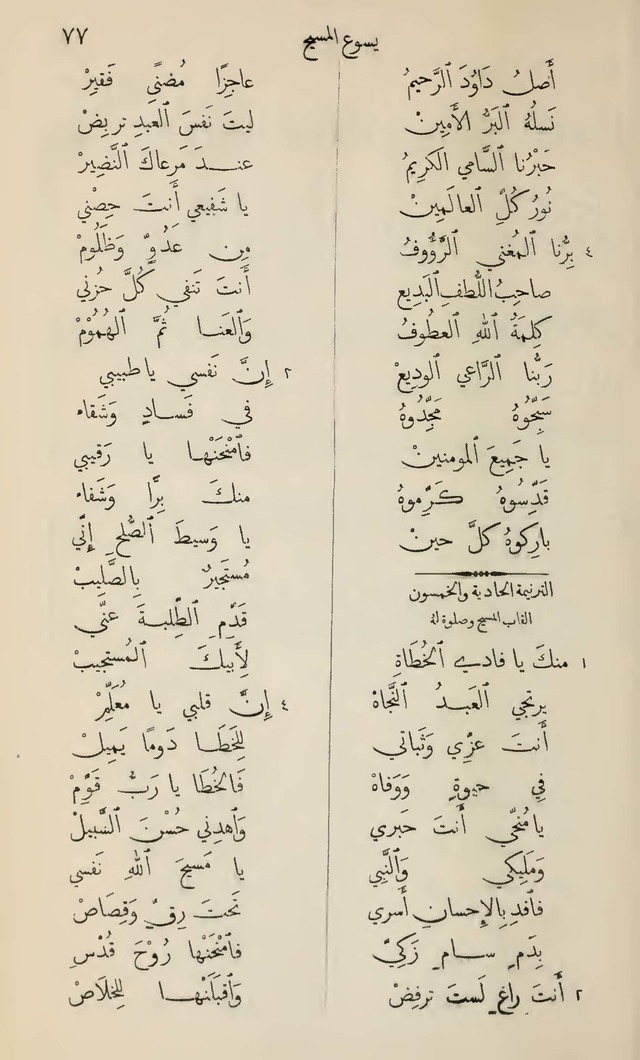 يسوع المسيح
٧٧
أَصلُ دَاوُدَ ٱلرَّحيمُ
نَسلُهُ ٱلبَرُّ ٱلأَمِينْ
حَبْرُنا ٱلسَّامي ٱلكَرِيمُ
نُورُ كُلِّ ٱلعالَمِينْ
٤ بِرُّنا ٱلمُغني ٱلرَّؤُوفُ
صاحِبُ ٱللُّطفِ ٱلبَدِيع
كِلمَةُ ٱللهِ ٱلعطُوفُ
رَبُّنا ٱلرَّاعي ٱلوَدِيعْ
سَبِّحُوهُ مَجِّدُوهُ
يا جَمِيعَ ٱلمومنين
قَدِّسُوهُ كَرِّموهُ
بارِكوهُ كلَّ حينْ
الترنيمة الحادية والخمسون
القاب المسيح وصلوة لهُ
١ منكَ يا فادي ٱلخُطَاةِ
يرتجي ٱلعَبدُ ٱلنَّجَاهْ
أَنتَ عزِّي وَثَباتي
في حيوةٍ وَوَفاهْ
يا مُنَجِّي أَنتَ حَبري
وَمَلِيكي وَٱلنَّبِي
فَٱفدِ بِٱلإِحسانِ أَسري
بِدَمٍ سامٍ زَكِيّْ
٢ أَنتَ راعٍ لَستَ ترفِضْ
عاجِزًا مُضنًى فَقِيرْ
ليتَ نَفسَ ٱلعبدِ تربِضْ
عندَ مَرعاكَ ٱلنَّضِيرْ
يا شَفِيعي أَنتَ حِصْني
مِن عَدُوٍّ وَظَلُومْ
أَنتَ تَنفي كُلَّ حُزني
وَٱلعَنا ثُمَّ ٱلهُمُومْ
٢ إِنَّ نَفسي يا طبيبي
في فَسادٍ وَشَقاء
فَٱمْنَحَنْها يا رَقِيبي
منكَ بِرًّا وَشَفاء
يا وَسيطَ ٱلصُّلحِ إِنِّي
مُستَجيرٌ بِٱلصَّلِيبْ
قَدِّمِ ٱلطِّلبةَ عنِّي
لِأَبيكَ ٱلمُستجيبْ
٤ إِنَّ قلبي يا مُعَلِّمْ
لِلخَطا دَومًا يَمِيلْ
فَٱلخُطَا يا رَبُّ قَوِّمْ
وَٱهدِني حُسْنَ ٱلسَّبيلْ
يا مَسيحَ ٱللهِ نَفسي
تَحتَ رِقٍّ وَقِصَاصْ
فَٱمْنَحَنْها رُوْحَ قُدْسٍ
وَٱقبَلَنْها لِلخَلاصْ